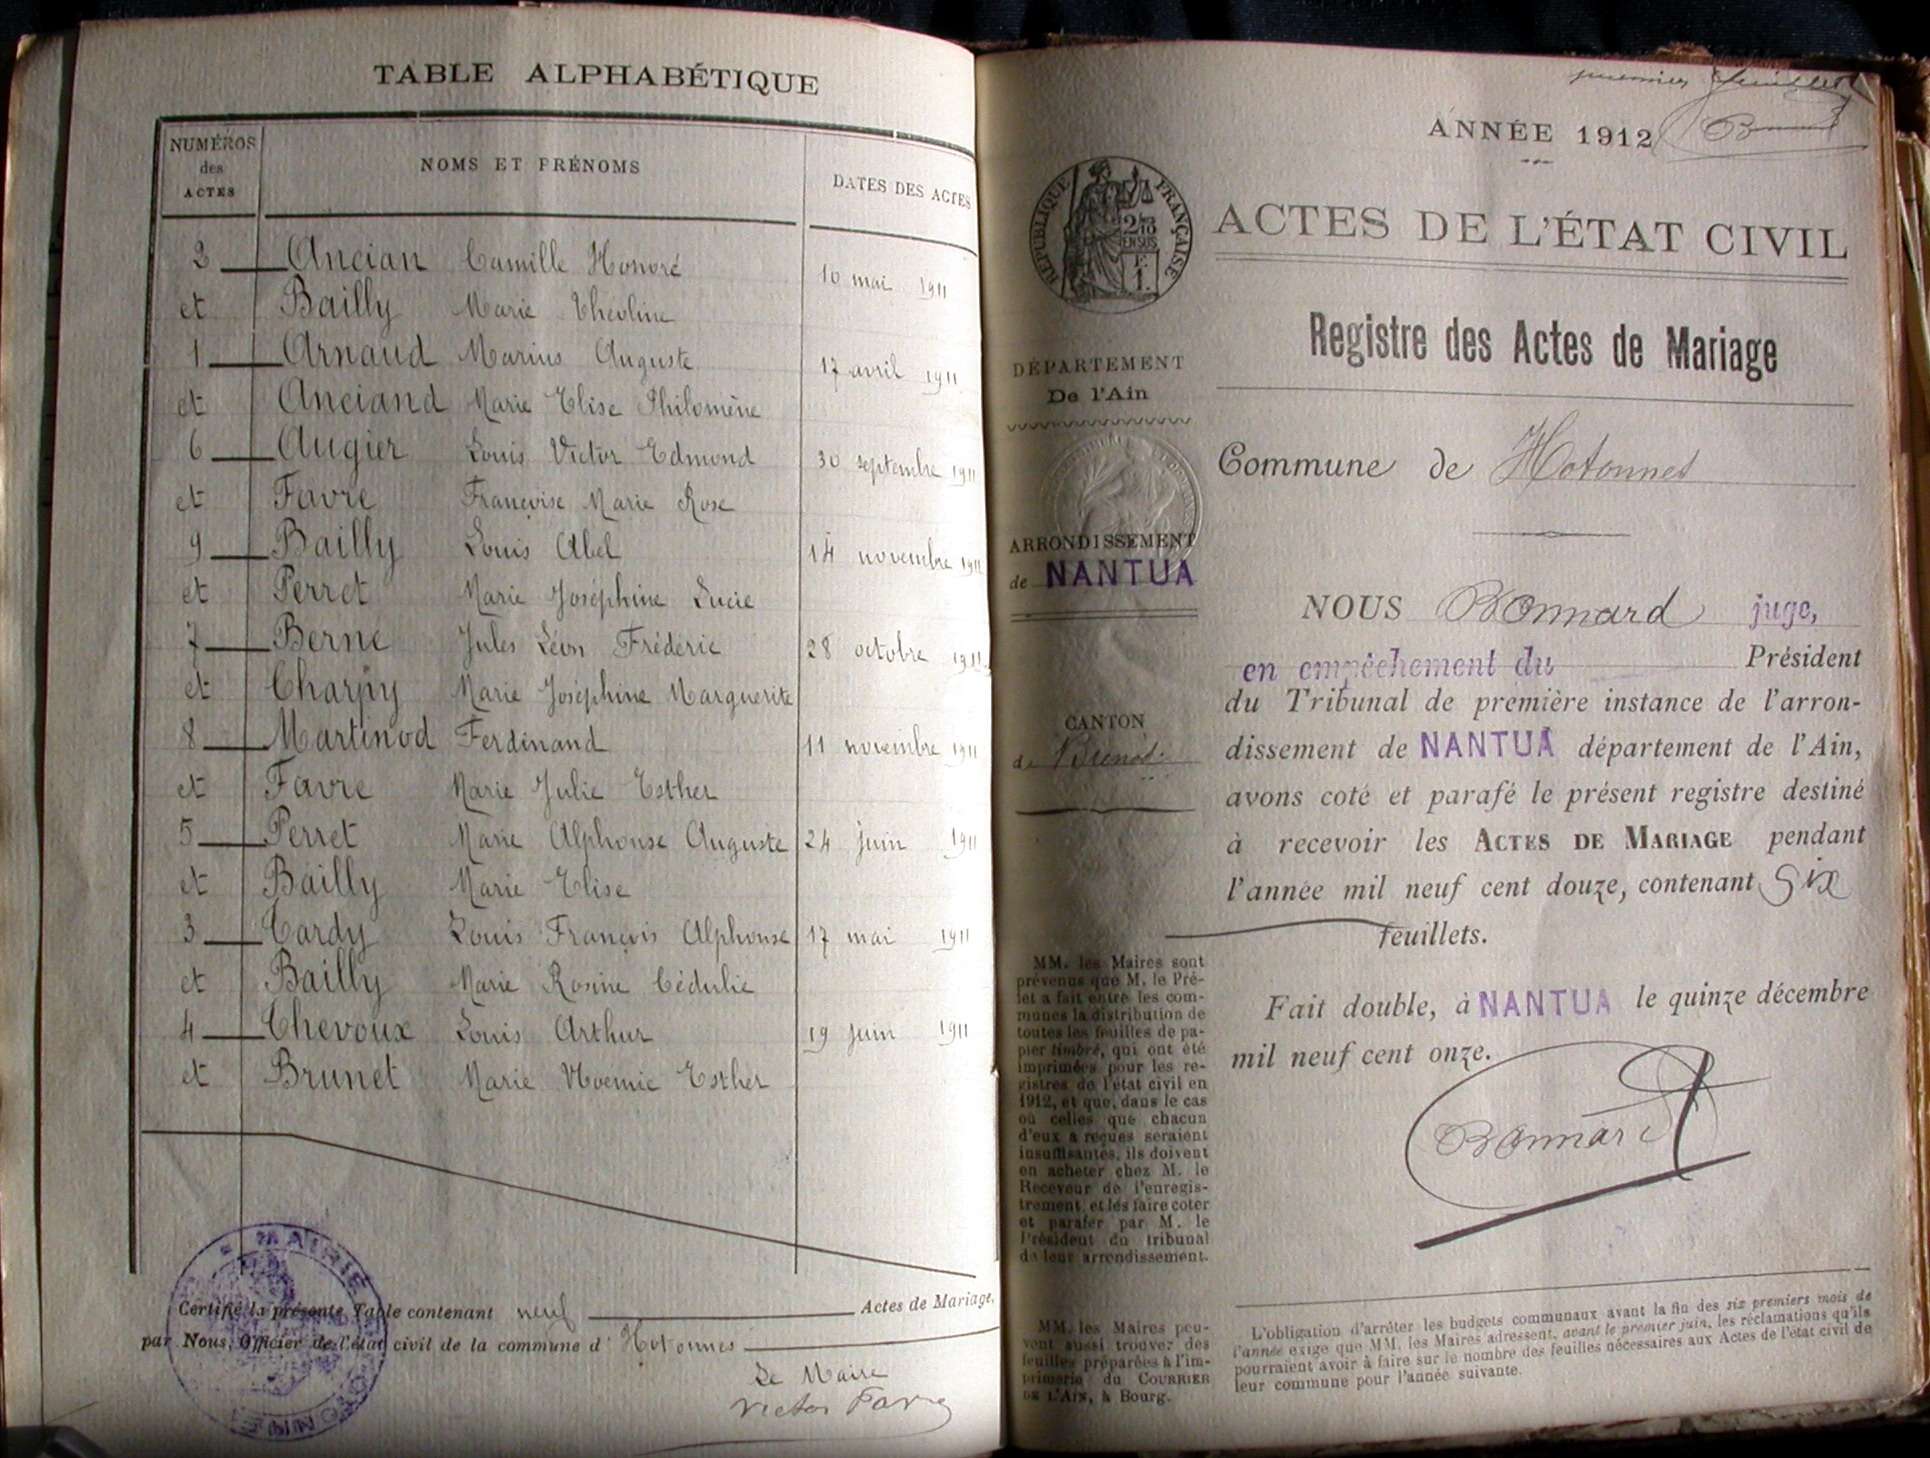 TABLE ALPHABÉTIQUE
NUMÉROS des ACTES
NOMS ET PRÉNOMS
DATES DES ACTES
2 Ancian Camille Honoré 10 mai 1911
et Bailly Marie Théoline
1 Arnaud Marius Auguste 17 avril 1911
et Anciand Marie Elise Philomène
6 Augier Louis Victor Edmond 30 septembre 1911
et Favre Françoise Marie Rose
9 Bailly Louis Abel 14 novembre 1911
et Perret Marie Joséphine Lucie
7 Berne Jules Léon Fréderic 28 octobre 1911
et Charpy Marie Joséphine Marguerite
8 Martinod Ferdinand 11 novembre 1911
et Favre Marie Julie Esther
5 Perret Marie Alphonse Auguste 24 juin 1911
et Bailly Marie Elise
3 Tardy Louis François Alphonse 17 mai 1911
et Bailly Marie Rosine Cédulie
4 Chevoux Louis Arthur 19 juin 1911
et Brunet Marie Noemie Esther
MAIRIE
Certifié la présente Table contenant neuf Actes de Mariage,
par Nous, Officier de l'état civil de la commune d' Hotonnes
Le Maire
Victor Favre
premier feuillet
ANNÉE 1912
RÉPUBLIQUE FRANÇAISE
ACTES DE L'ÉTAT CIVIL
Registre des Actes de Mariage
DÉPARTEMENT
De l'Ain
Commune de Hotonnes
ARRONDISSEMENT
de NANTUA
CANTON
de Brenod
NOUS Bonnard juge,
en empêchement du Président
du Tribunal de première instance de l'arron-
dissement de NANTUA département de l'Ain,
avons coté et parafé le présent registre destiné
à recevoir les ACTES DE MARIAGE pendant
l'année mil neuf cent douze, contenant Six
feuillets.
Fait double, à NANTUA le quinze décembre
mil neuf cent onze.
Bonnard
MM. les Maires sont
prévenus que M. le Pré-
fet a fait entre les com-
munes la distribution de
toutes les feuilles de pa-
pier timbré, qui ont été
imprimées pour les re-
gistres de l'état civil en
1912, et que, dans le cas
où celles que chacun
d'eux a reçues seraient
insuffisantes, ils doivent
en acheter chez M. le
Receveur de l'enregis-
trement, et les faire coter
et parafer par M. le
Président du tribunal
de leur arrondissement.
MM. les Maires peu-
vent aussi trouver des
feuilles préparées à l'im-
primerie du COURRIER
DE L'AIN, à Bourg.
L'obligation d'arrêter les budgets communaux avant la fin des six premiers mois de
l'année exige que MM. les Maires adressent, avant le premier juin, les réclamations qu'ils
pourraient avoir à faire sur le nombre des feuilles nécessaires aux Actes de l'état civil de
leur commune pour l'année suivante.